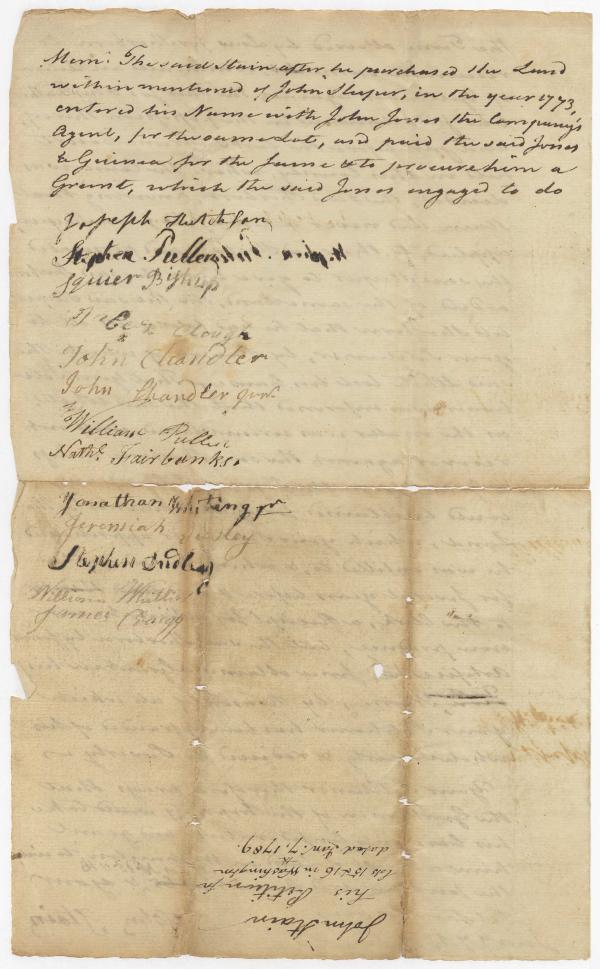 Mem: The said Stain after he purchased the Land
within mentioned of John Sleeper, in the year 1773,
entered his Name with John Jones the Company's
Agent, for the same Lot, and paid the said Jones
a Guinea for the same & to procure him a
Grant, which the said Jones engaged to do
Joseph Hutchson
Stephen Pullen
Squier Bishup
Clough
John Chandler
John Chandler junr
William Pullen
Nathl. Fairbanks.
Jonathan Whiting jr
Jeremiah
Stephen
William Whittier
James Craigg
John Stain
His Petition for
lots 15 & 16 in Washington
dated Jany. 7. 1789.